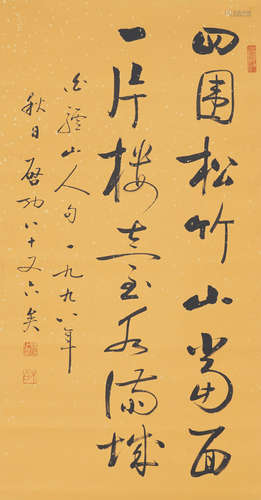 四围松竹山當面
一片楼臺水满城
山人句 一九九八年
秋日 啓功八十又六矣